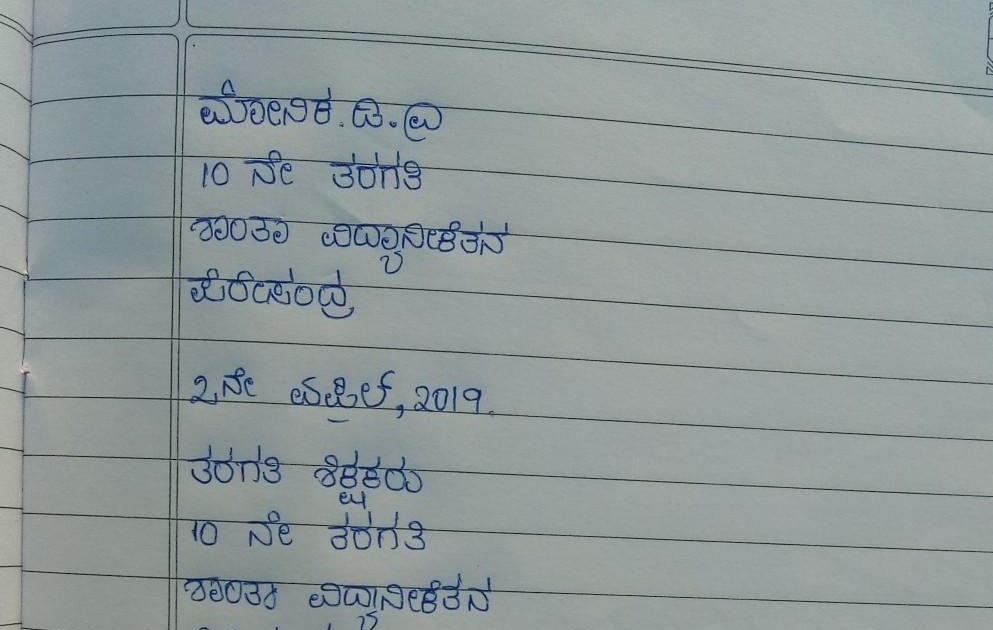 ಮೋನಿಕ.ಡಿ.ವಿ
10 ನೇ ತರಗತಿ
ಶಾಂತಾ ವಿದ್ಯಾನಿಕೆತನ
ಪೆರೇಸಂದ್ರ
2ನೇ ಏಪ್ರಿಲ್, 2019.
ತರಗತಿ ಶಿಕ್ಷಕರು
10 ನೇ ತರಗತಿ
ಶಾಂತಾ ವಿದ್ಯಾನಿಕೆತನ